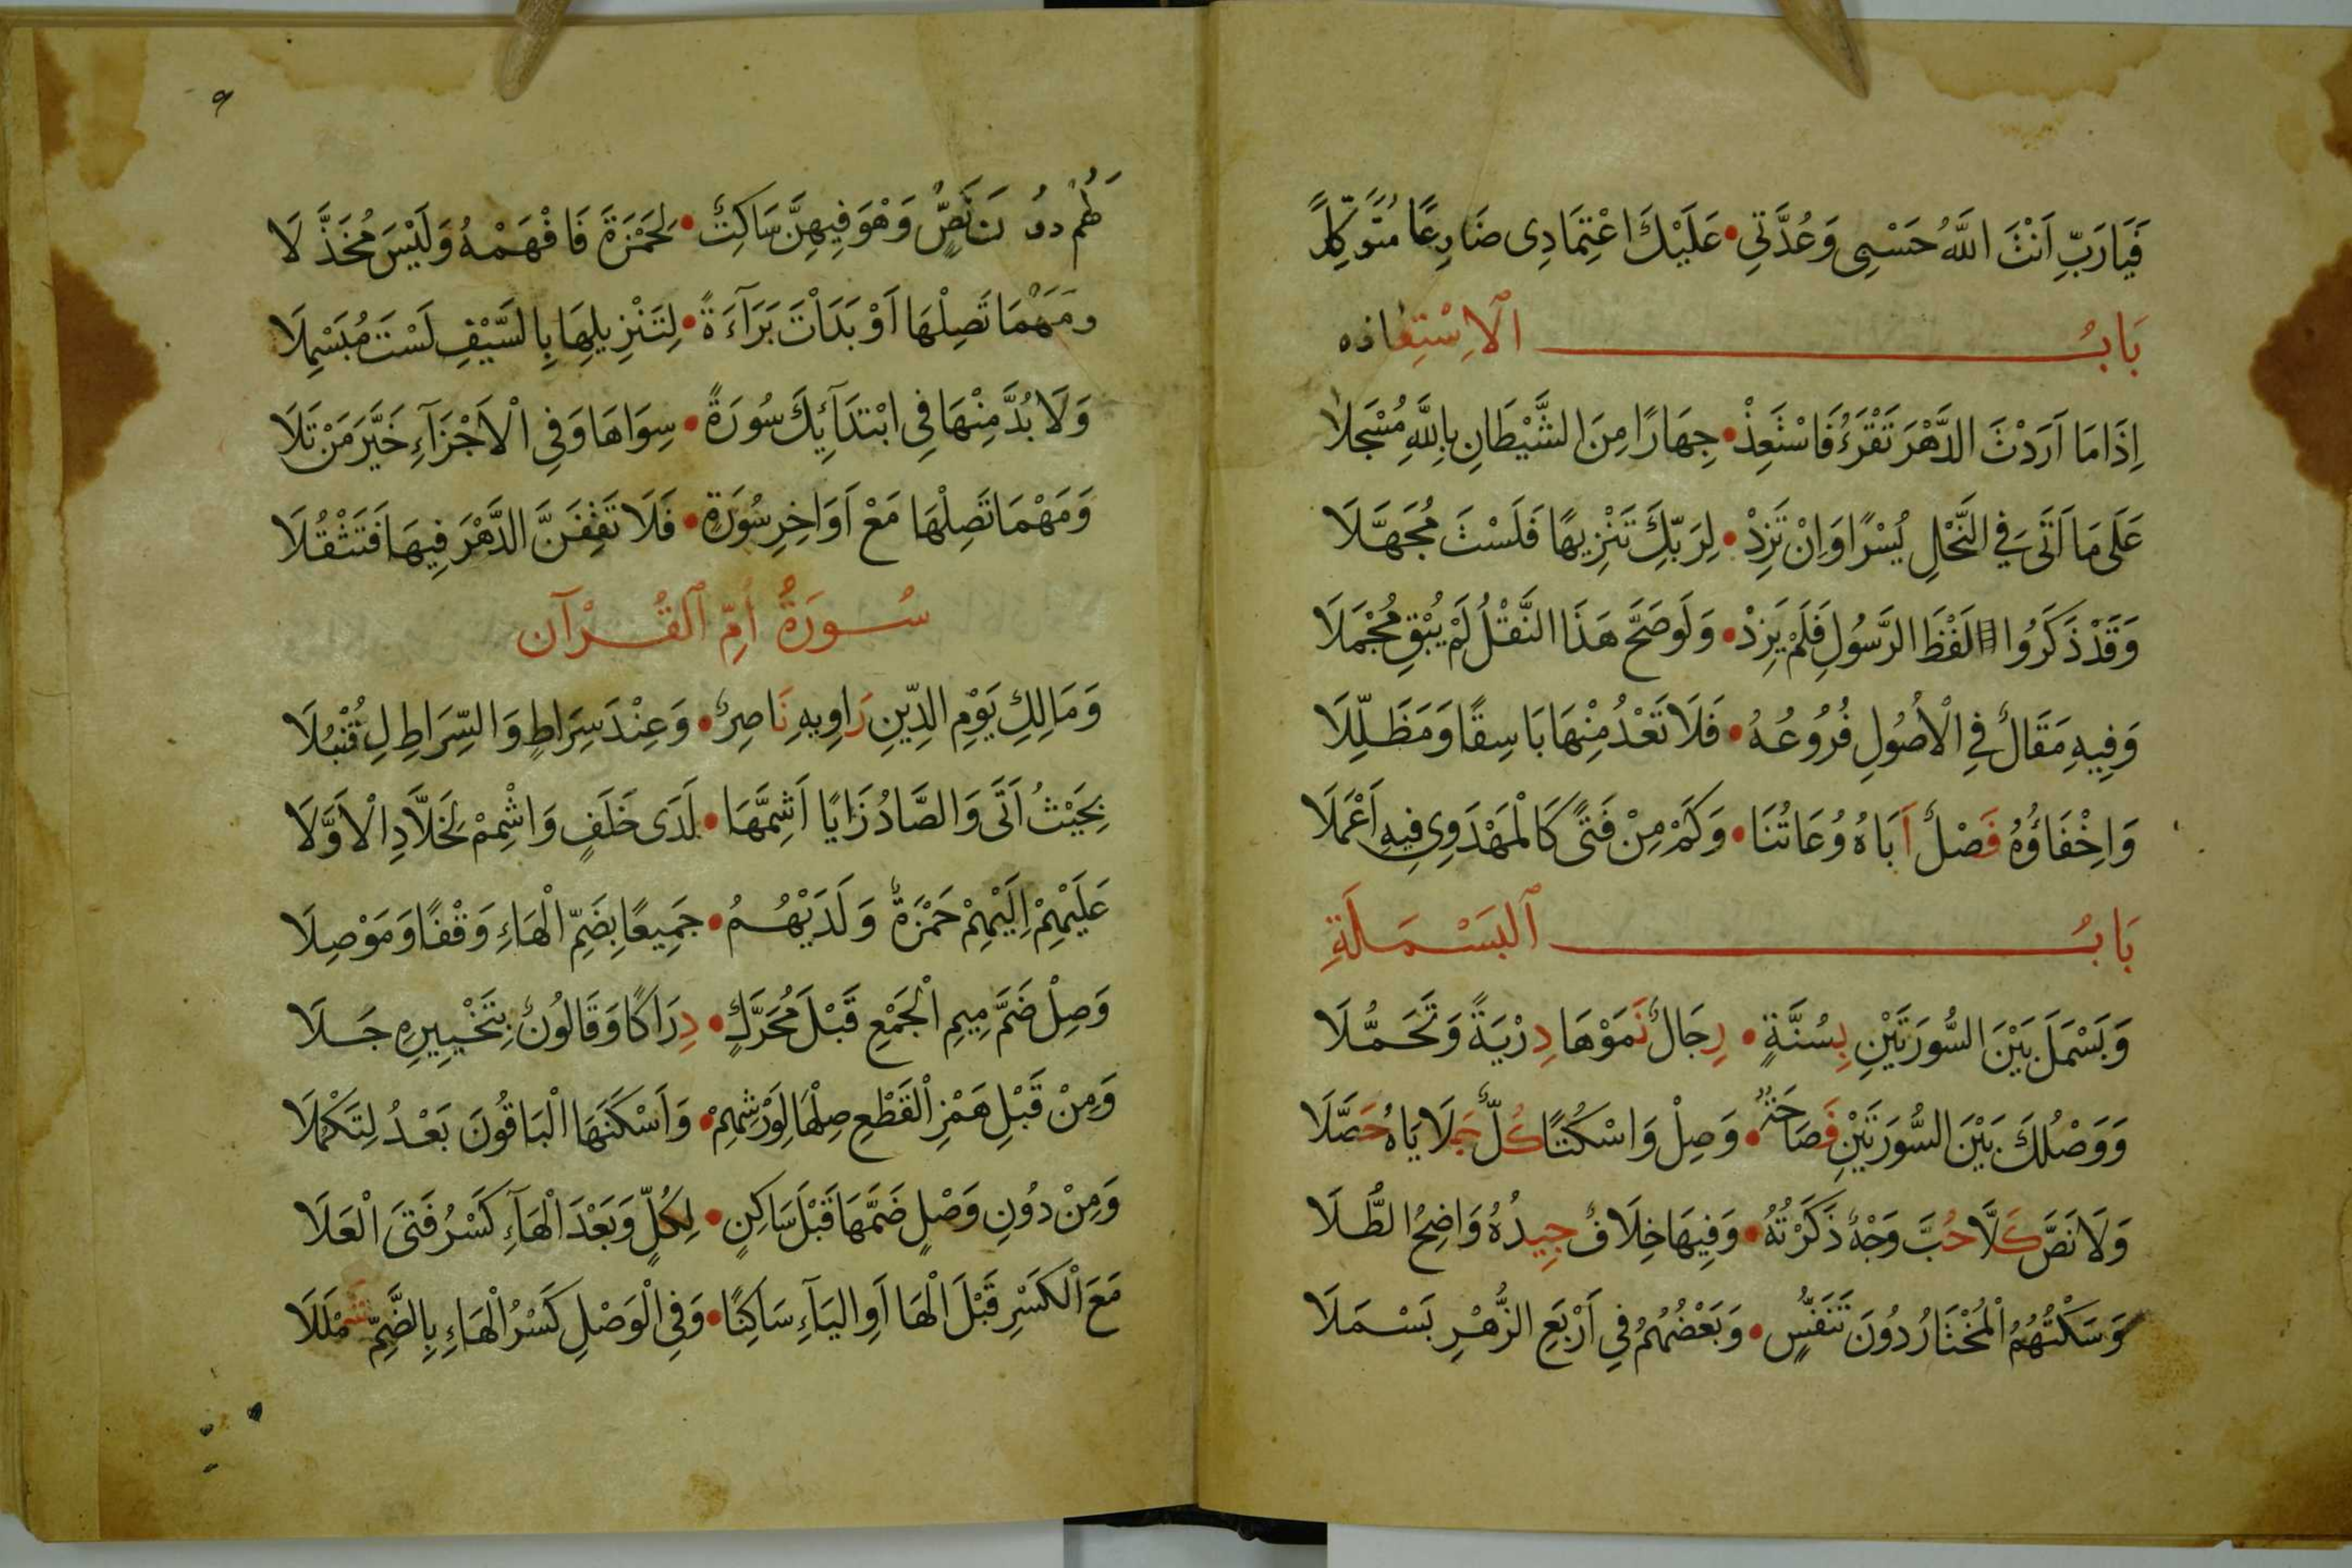 فَيَارَبِّ اَنْتَ اللَّهُ حَسْبِى وَعُدَّتِي • عَلَيْكَ اعْتِمَادِى ضَارِعًا مُتَوَكِّلًا
بَابُ الاِسْتِعاذه
اِذَا مَا اَرَدْتَ الدَّهْرَ تَقْرَءُ فَاسْتَعِذْ • جِهَارًا مِنَ الشَّيْطَانِ بِاللَّهِ مُسْجَلَا
عَلَى مَا اَتَى فِي النَّحْلِ يُسْرًا وَاِنْ تَزِدْ • لِرَبِّكَ تَنْزِيهًا فَلَسْتَ مُجَهَّلَا
وَقَدْ ذَكَرُوا لَفْظَ الرَّسُولِ فَلَمْ يَزِدْ • وَلَوصَحَّ هَذَا النَّقْلُ لَمْ يُبْقِ مُجْمَلَا
وَفِيهِ مَقَالٌ فِي الْاُصُولِ فُرُوعُهُ • فَلَا تَعْدُ مِنْهَا بَاسِقًا وَمَظَلِّلَا
وَاِخْفَاؤُهُ فَصْلٌ اَبَاهُ وُعَاتُنَا • وَكَمْ مِنْ فَتًى كَالْمَهْدَوِى فِيهِ اَعْمَلَا
بَابُ اَلْبَسْمَلَةِ
وَبَسْمَلَ بَيْنَ السُّورَتَيْنِ بِسُنَّةٍ • رِجَالٌ نَمَوْهَا دِرْيَةً وَتَحَمُّلَا
وَوَصْلُكَ بَيْنَ السُّورَتَيْنِ فَصَاحَةٌ • وَصِلْ وَاسْكُتًا كُلٌّ جَلَا يَاهُ حَصَّلَا
وَلَا نَصَّ كَلَّا حُبَّ وَجْهٌ ذَكَرْتُهُ • وَفِيهَا خِلَافٌ جِيدُهُ وَاضِحُ الطُّلَا
وَسَكْتُهُمُ الْمُخْتَارُ دُونَ تَنَفُّسٍ • وَبَعْضُهُمُ فِي اَرْبَعِ الزُّهْرِ بَسْمَلَا
۹
لَهُم دُونَ نَصٍّ وَهْوَ فِيهِنَّ سَاكِتٌ • لِحَمْزَةَ فَافْهَمْهُ وَلَيْسَ مُخَذَّلَا
وَمَهْمَا تَصِلْهَا اَوْ بَدَاْتَ بَرَآءَةً • لِتَنْزِيلِهَا بِالسَّيْفِ لَسْتَ مُبَسْمِلَا
وَلَا بُدَّ مِنْهَا فِي ابْتِدَآئِكَ سُورَةً • سِوَاهَا وَفِي الْاَجْزَآءِ خَيَّرَ مَنْ تَلَا
وَمَهْمَا تَصِلْهَا مَعْ اَوَاخِرِ سُورَةٍ • فَلَا تَقِفَنَّ الدَّهْرَ فِيهَا فَتَثْقُلَا
سُورَةُ اُمِّ اَلْقُرْآن
وَمَالِكِ يَوْمِ الدِّينِ رَاوِيهِ نَاصِرٌ • وَعِنْدَ سِرَاطٍ وَالسِّرَاطِ لِ قُنْبُلَا
بِحَيْثُ اَتَى وَالصَّادُ زَايًا اَشِمَّهَا • لَدَى خَلَفٍ وَاشْمِمْ لِخَلَّادِ الْاَوَّلَا
عَلَيْهِمْ اِلَيْهِمْ حَمْزَةٌ وَلَدَيْهُمُ • جَمِيعًا بِضَمِّ الْهَاءِ وَقْفًا وَمَوْصِلَا
وَصِلْ ضَمَّ مِيمِ الْجَمْعِ قَبْلَ مُحَرَّكٍ • دِرَاكًا وَقَالُونٌ بِتَخْيِيرِهِ جَلَا
وَمِنْ قَبْلِ هَمْزِ الْقَطْعِ صِلْهَا لِوَرْشِهِمْ • وَاَسْكَنَهَا الْبَاقُونَ بَعْدُ لِتَكْمُلَا
وَمِنْ دُونِ وَصْلٍ ضَمَّهَا قَبْلَ سَاكِنٍ • لِكُلٍّ وَبَعْدَ الْهَآءِ كَسْرُ فَتَى الْعَلَا
مَعَ الْكَسْرِ قَبْلَ الْهَا اَوِ الْيَآءِ سَاكِنًا • وَفِي الْوَصْلِ كَسْرُ الْهَاءِ بِالضَّمِّ شَمْلَلَا